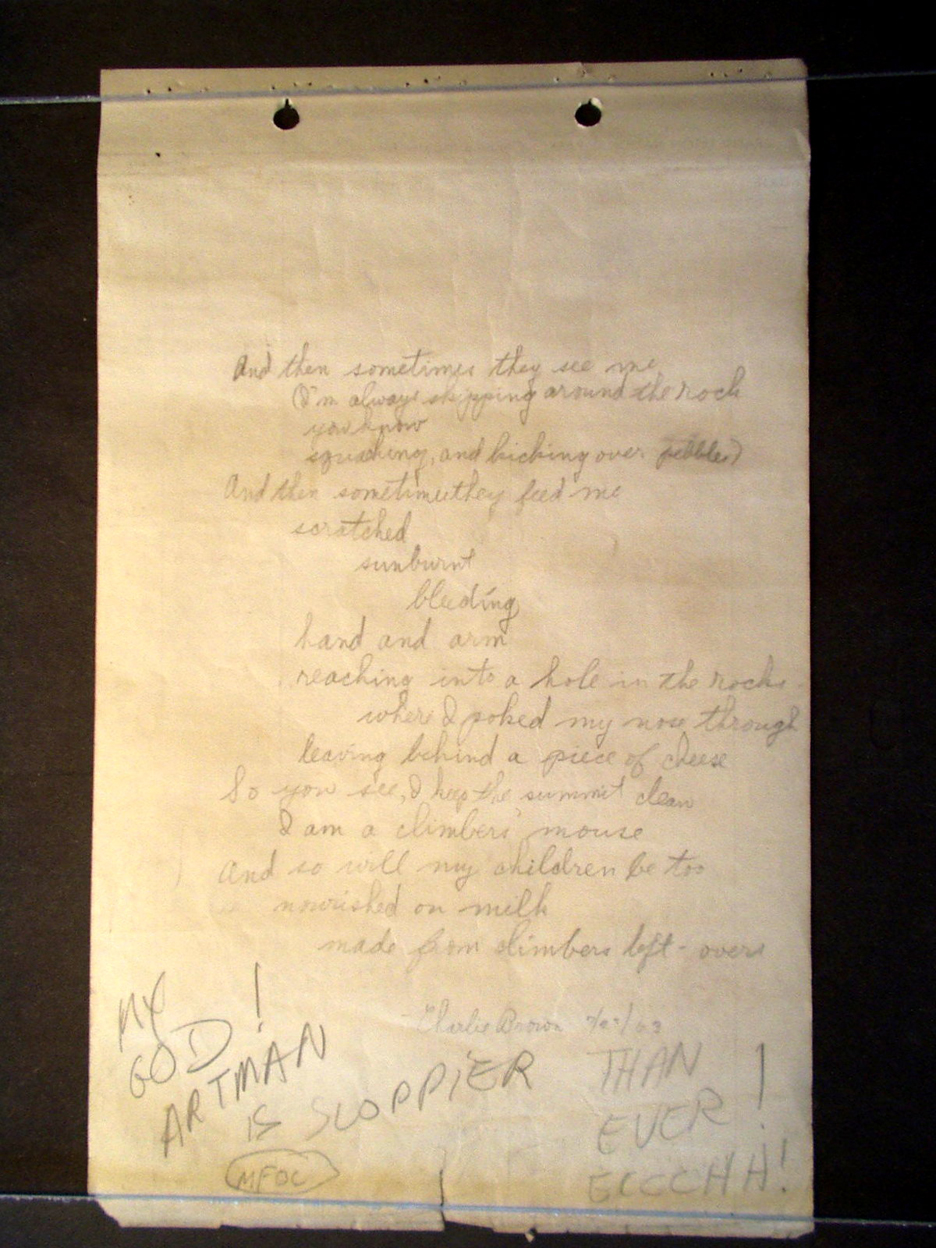 And then sometimes they see me
I'm always skipping around the rock
you know
squeaking, and kicking over pebbles
And then sometimes they feed me
scratched
sunburnt
bleeding
hand and arm
reaching into a hole in the rocks
where I poked my nose through
leaving behind a piece of cheese
So you see, I keep the summit clean
I am a climbers' mouse
And so will my children be too
nourished on milk
made from climbers left-overs
Charlie Brown
MY
GOD!
ARTMAN
IS SLOPPIER THAN
EVER!
ECCCHH!
MFOC